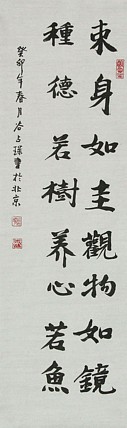 束身如圭觀物如鏡
種德若樹養心若魚
癸卯年春月谷占琛書於北京